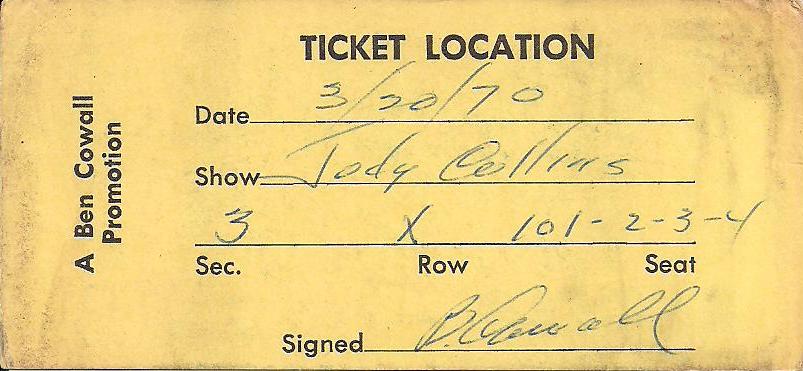 TICKET LOCATION
A Ben Cowall
Promotion
Date 3/20/70
Show Judy Collins
3 X 101-2-3-4
Sec. Row Seat
Signed B Cowall